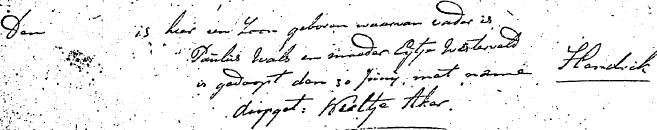 Den is hier een Zoon geboren waarvan vader is
Paulus Wals en moeder Eytje Westerveld
is gedoopt den 30 Juny, met name Hendrick
doopget: Neeltje Aker.